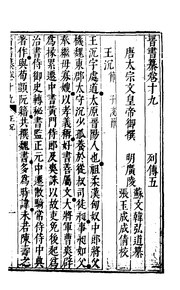 晉書纂卷十九　列傳五
唐太宗文皇帝御撰
明廣陵
蘇文韓弘道纂
張玉成成倩校
王沉
王沉字處道太原晉陽人也祖柔漢匈奴中郎將父
機魏東郡太守沉少孤養於從叔司徒昶事昶如父
奉繼母寡嫂以孝義稱好書善屬文大將軍曹爽辟
爲掾累遷中書門下侍郎及爽誅以故吏免後起爲
治書侍御史轉秘書監正元中遷散騎常侍侍中典
著作與荀顗阮籍共撰魏書多爲時諱未若陳壽之